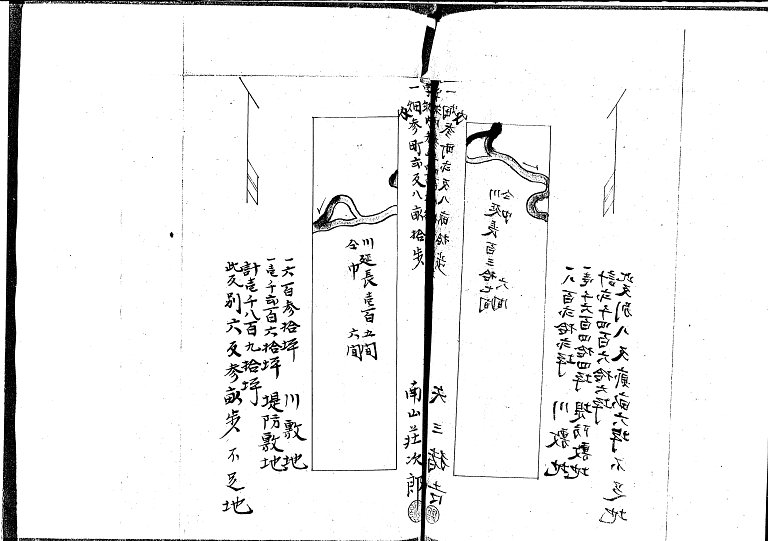 一畑参町弐反八畝拾歩
南山荘次郎
川延長壱百五間
仝巾 六間
一六百参拾坪 川敷地
一壱千弐百六拾坪 堤防敷地
計壱千八百九拾坪
此反別六反参畝歩 不足地
一畑参町弐反八畝拾歩
川延長百三拾七間
仝巾 六間
一八百弐拾弐坪 川敷地
一壱千六百四拾四坪 堤防敷地
計弐千四百六拾六坪
此反別八反貳畝六歩 不足地